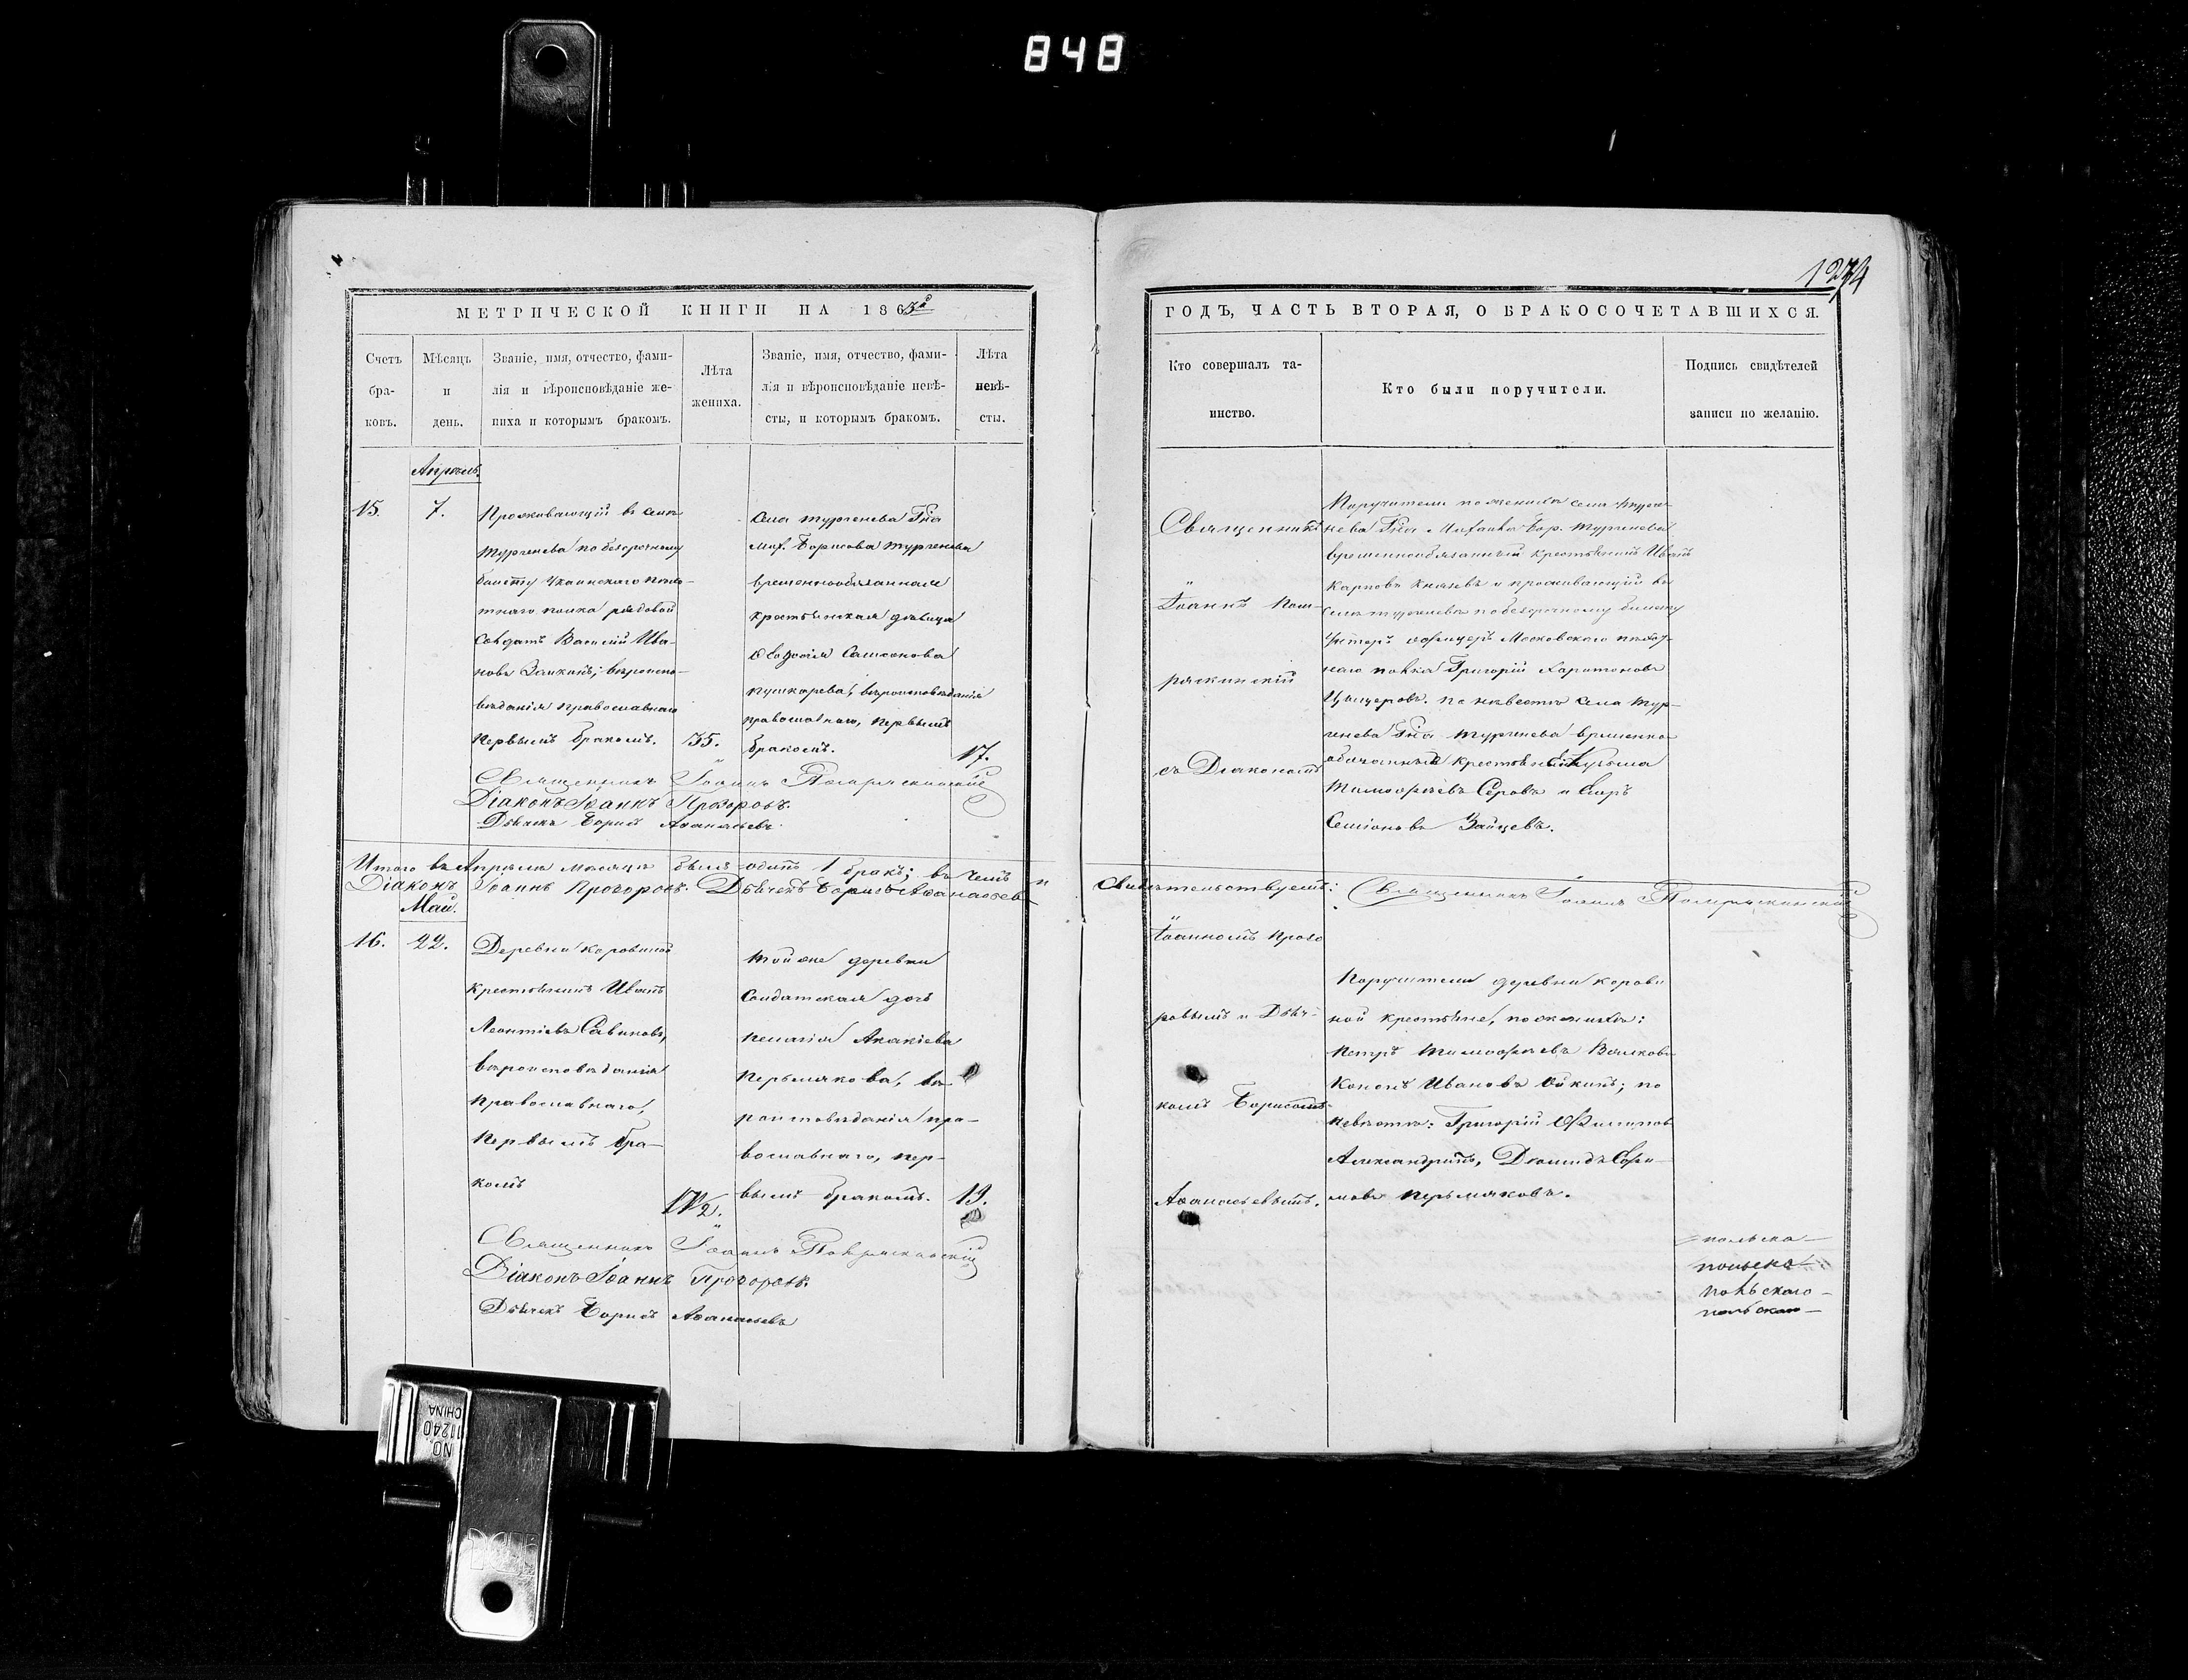 848
1274
МЕТРИЧЕСКОЙ КНИГИ НА 1863й
Счетъ бра-ковъ.
Мѣсяцъ и день.
Званіе, имя, отчество, фами-
лія и вѣроисповѣданіе же-
ниха и которымъ бракомъ.
Лѣта жениха.
Званіе, имя, отчество, фами-
лія и вѣроисповѣданіе невѣ-
сты, и которымъ бракомъ.
Лѣта невѣ-сты.
Апрѣль.
15.
7.
Проживающій въ селѣ
Тургенева по безсрочному
билету Украинскаго пѣхо-
тнаго полка рядовой
Солдатъ Василій Ива-
новъ Заикинъ; вѣроиспо-
вѣданія православнаго
первымъ бракомъ.
35.
Села Тургенева Гна
Мих. Борисова Тургенева
временнообязанная
крестьянская дѣвица
Ѳеодосія Самсонова
Пушкарева, вѣроисповѣданія
православнаго, первымъ
бракомъ.
17.
Священникъ Іоаннъ Помряскинскій
Діаконъ Іоаннъ Прозоровъ.
Дьячекъ Борисъ Аѳанасьевъ.
Итого въ Апрѣлѣ мѣсяцѣ былъ одинъ 1 бракъ; въ чемъ
Діаконъ Іоаннъ Прозоровъ. Дьячекъ Борисъ Аѳанасьевъ
Май.
16.
22.
Деревни Коровиной
крестьянинъ Иванъ
Леонтіевъ Савиновъ,
вѣроисповѣданія
православнаго,
первымъ бра-
комъ
17 1/2.
Той же деревни
Солдатская дочь
Пелагія Акакіева
Пермякова, вѣ-
роисповѣданія пра-
вославнаго, пер-
вымъ бракомъ.
19.
Священникъ Іоаннъ Помряскинскій
Діаконъ Іоаннъ Прозоровъ.
Дьячекъ Борисъ Аѳанасьевъ
ГОДЪ, ЧАСТЬ ВТОРАЯ, О БРАКОСОЧЕТАВШИХСЯ.
Кто совершалъ та-
инство.
Кто были поручители.
Подпись свидѣтелей
записи по желанію.
Священникъ
Іоаннъ Пом-
ряскинскій
съ Діакономъ
Поручители по женихѣ села Турге-
нева Гна Михаила Бор. Тургенева
временнообязанный крестьянинъ Иванъ
Карповъ Князевъ и проживающій въ
селѣ Тургеневѣ по безсрочному билету
Унтеръ офицеръ Московскаго пѣхот-
наго полка Григорій Харитоновъ
по невѣстѣ села Тур-
генева Гна Тургенева временно
обязанный крестьянинъ Кузьма
Тимоѳѣевъ Серовъ и Егоръ
Семіоновъ Зайцевъ.
свидѣтельствуемъ: Священникъ Іоаннъ Помряскинскій
Іоанномъ Прозо
ровымъ и Дьяч-
комъ Борисомъ
Аѳанасьевымъ.
Поручители деревни Корови
ной крестьяне, по женихѣ:
Петръ Тимоѳѣевъ Волковъ
Кононъ Ивановъ Ойкинъ; по
невѣстѣ: Григорій Филиповъ
Александринъ, Діомидъ Ефи-
мовъ Пермяковъ.
польска-
польска-
польскаго-
польскаго-
NO. 11240
CHINA